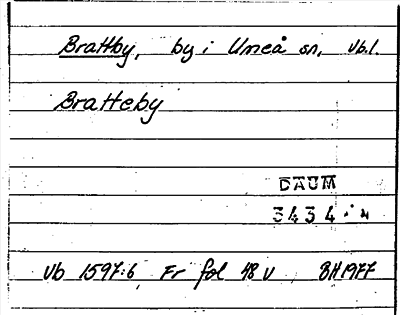 Brattby, by i Umeå sn, Vb.l.
Bratteby
DAUM
3434
Vb 1597:6 Fr fol 48 v BH 1977